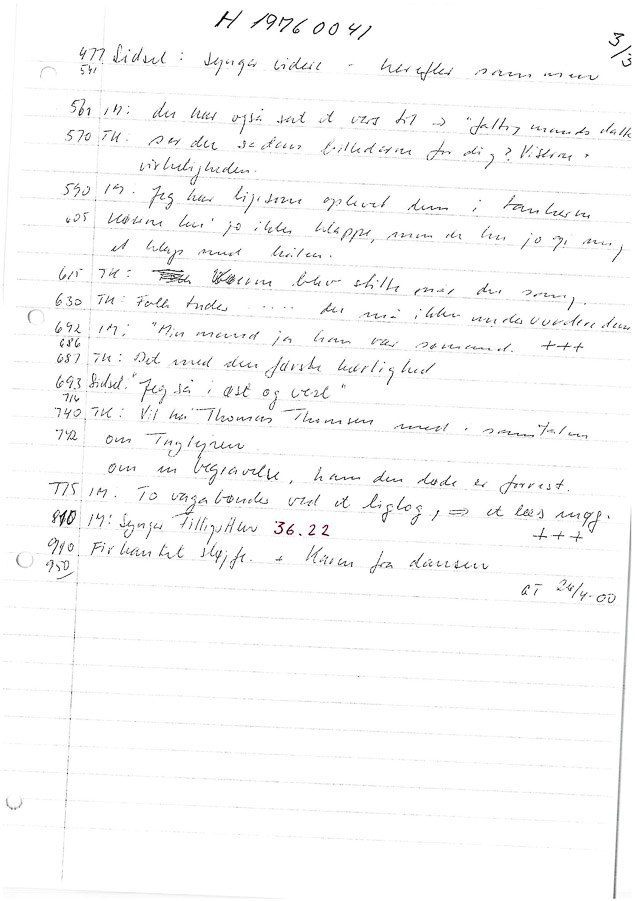 H 19760041
3/3
477 Sidsel: synger videre - herefter sammen
541
561 IM: du har også sat et vers til => "fattig mands datter
570 TK: ser du sådan billederne for dig? Viserne +
virkeligheden.
590 IM. Jeg har ligesom oplevet dem i tankerne
605 kunne jo ikke klappe, men de jo gi mig
et klap med
615 TK: blev stille når du sang.
630 TK: Folk .... du må ikke
692 IM: "Min mand ja han var sømand. +++
686
687 TK: Det med den første kærlighed
693 Sidsel: "Jeg så i øst og vest"
716
740 TK: Vil Thomas Thomsen med i samtalen
742 om
om en begravelse, ham den døde er forrest.
775 IM. To vagabonder ved et ligtog, => et læs møg.
810 IM: Synger 36.22 +++
910 Firkantet sløjfe. + Karen fra dansen
950
GT 24/4-00